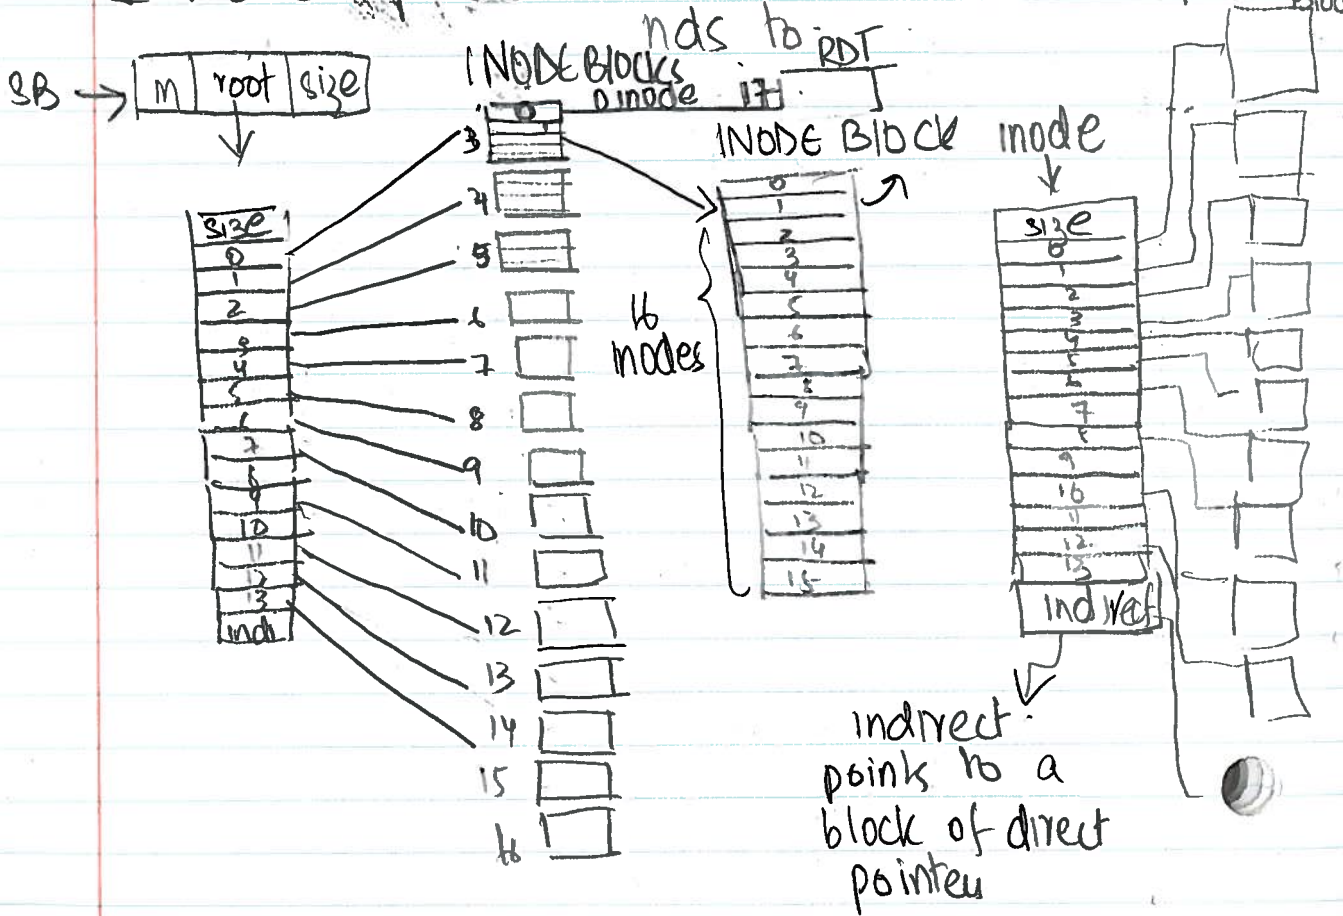 nds to
RDT
INODE Blocks
SB → m root size
0 inode 17
INODE BLOCK
inode
size
0
1
2
3
4
5
6
7
8
9
10
11
12
13
indi
3
4
5
6
7
8
9
10
11
12
13
14
15
16
0
16
inodes
0
1
2
3
4
5
6
7
8
9
10
11
12
13
14
15
size
0
1
2
3
4
5
6
7
8
9
10
11
12
13
indirect
indirect
points to a
block of direct
pointers